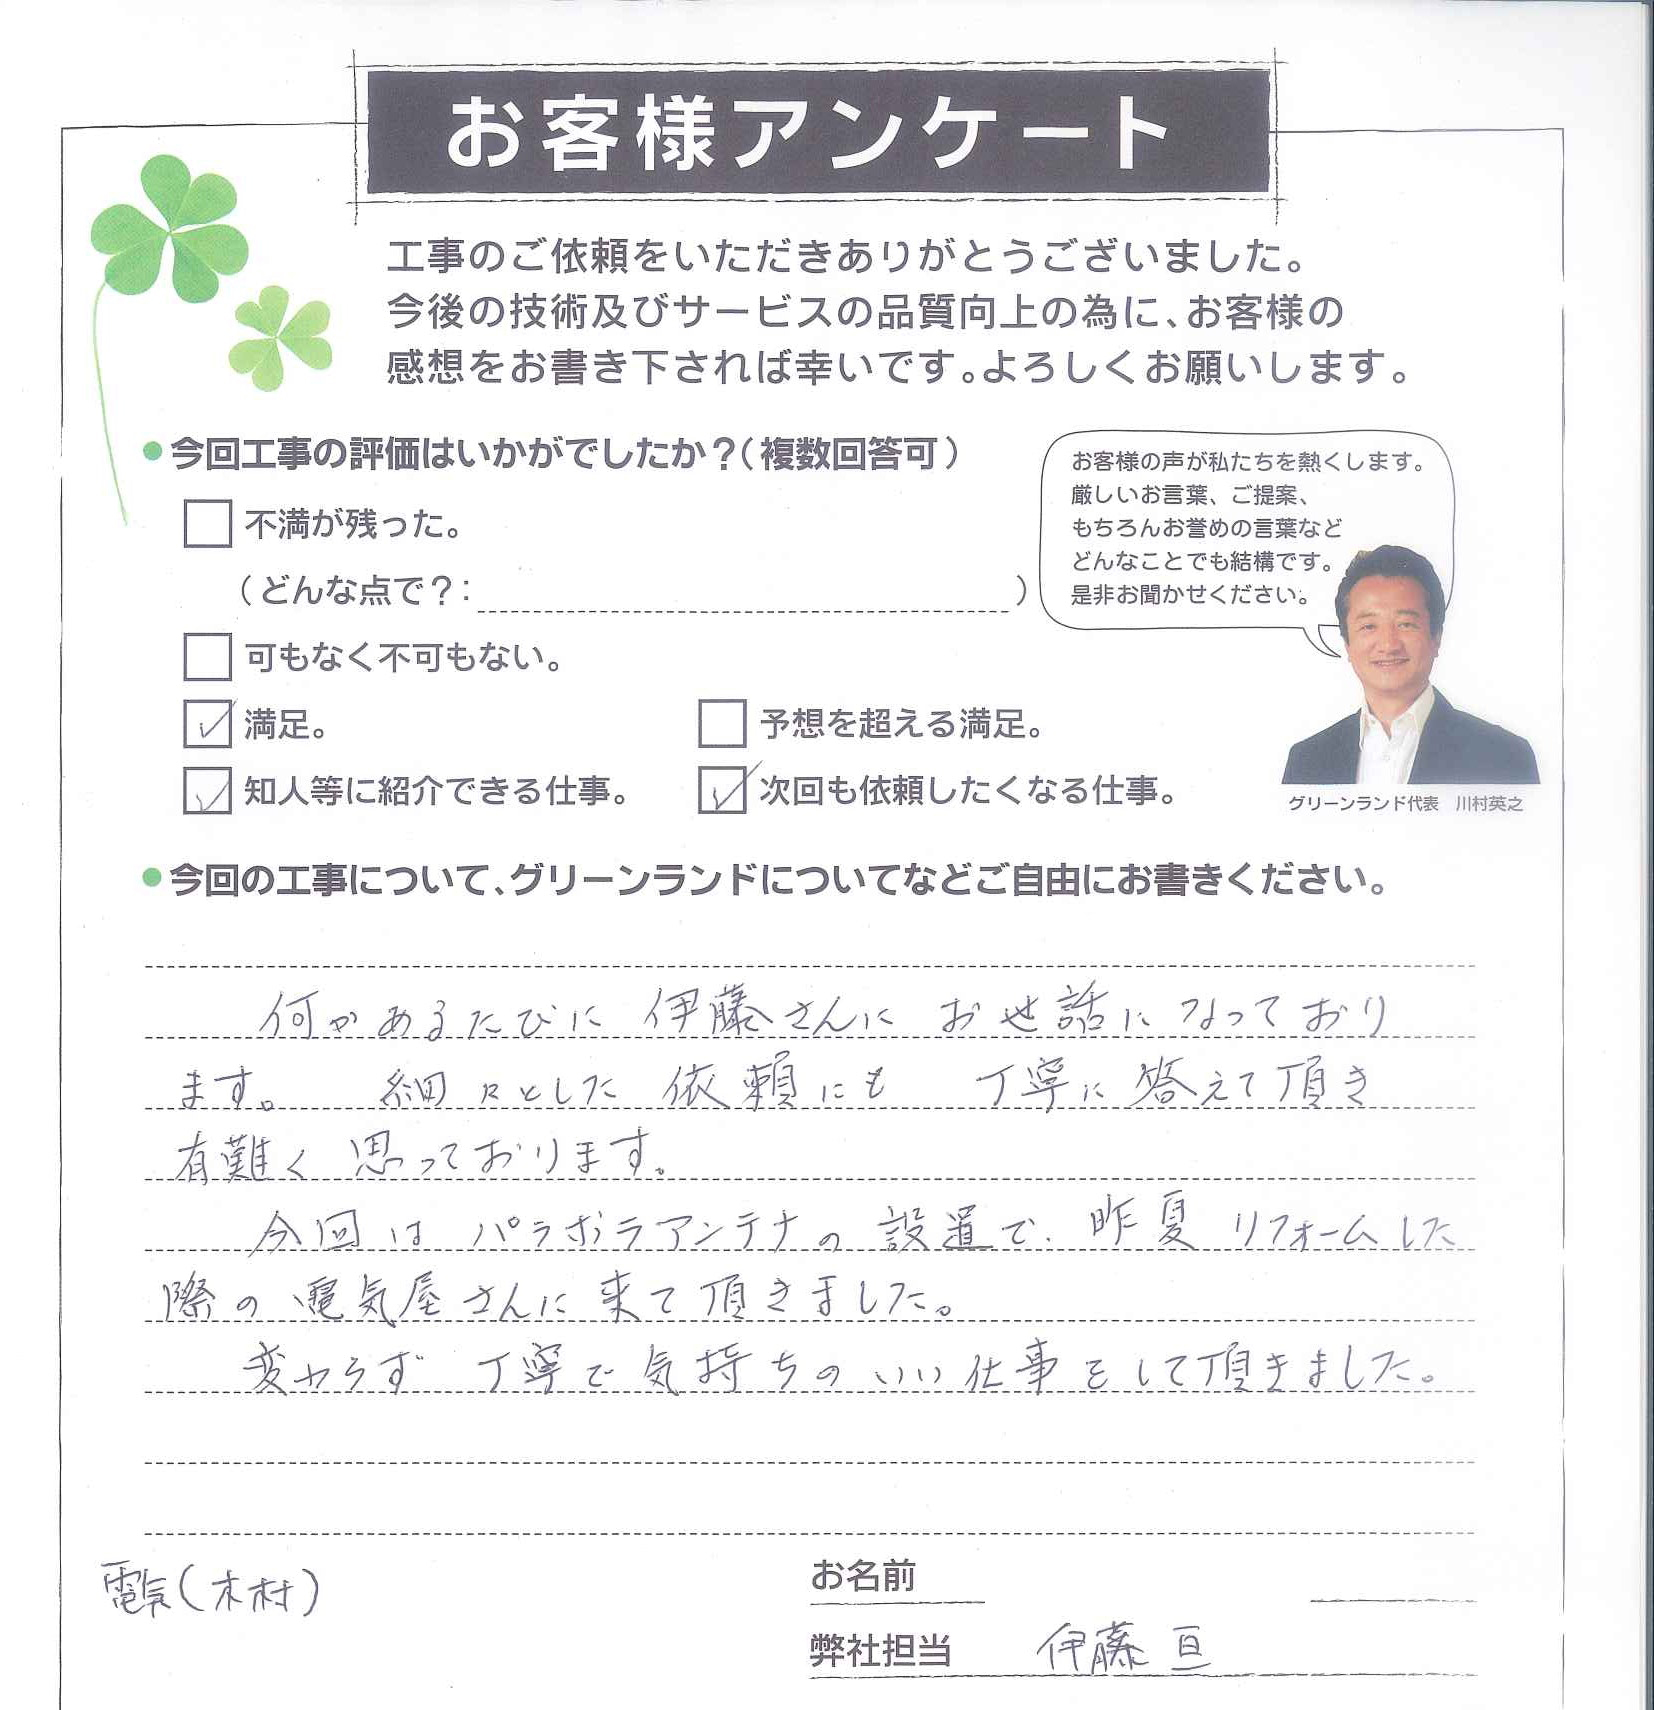 お客様アンケート
工事のご依頼をいただきありがとうございました。
今後の技術及びサービスの品質向上の為に、お客様の
感想をお書き下されば幸いです。よろしくお願いします。
●今回工事の評価はいかがでしたか？（複数回答可）
不満が残った。
（どんな点で？：　）
可もなく不可もない。
満足。
予想を超える満足。
知人等に紹介できる仕事。
次回も依頼したくなる仕事。
お客様の声が私たちを熱くします。
厳しいお言葉、ご提案、
もちろんお誉めの言葉など
どんなことでも結構です。
是非お聞かせください。
グリーンランド代表　川村英之
●今回の工事について、グリーンランドについてなどご自由にお書きください。
何かあるたびに 伊藤さんに お世話になっており
ます。 細々とした 依頼にも 丁寧に 答えて頂き
有難く 思っております。
今回は パラボラアンテナの 設置で、昨夏 リフォームした
際の 電気屋さんに 来て頂きました。
変わらず 丁寧で 気持ちの いい 仕事をして頂きました。
電気(木村)
お名前
弊社担当　伊藤 亘